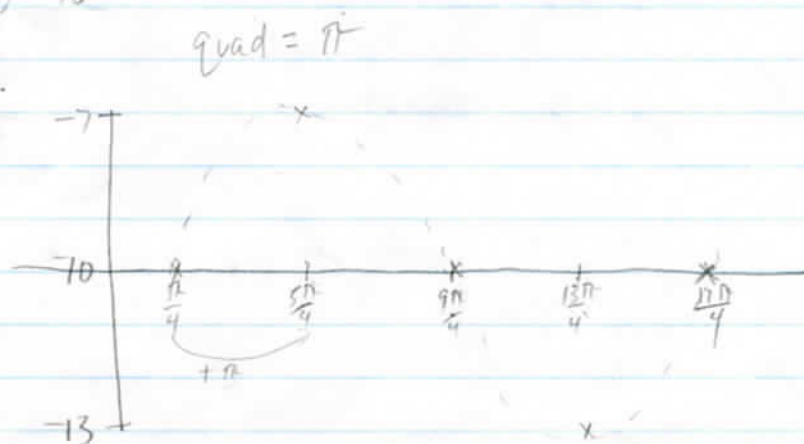 quad = π
-7
-10
π/4 5π/4 9π/4 13π/4 17π/4
+π
-13